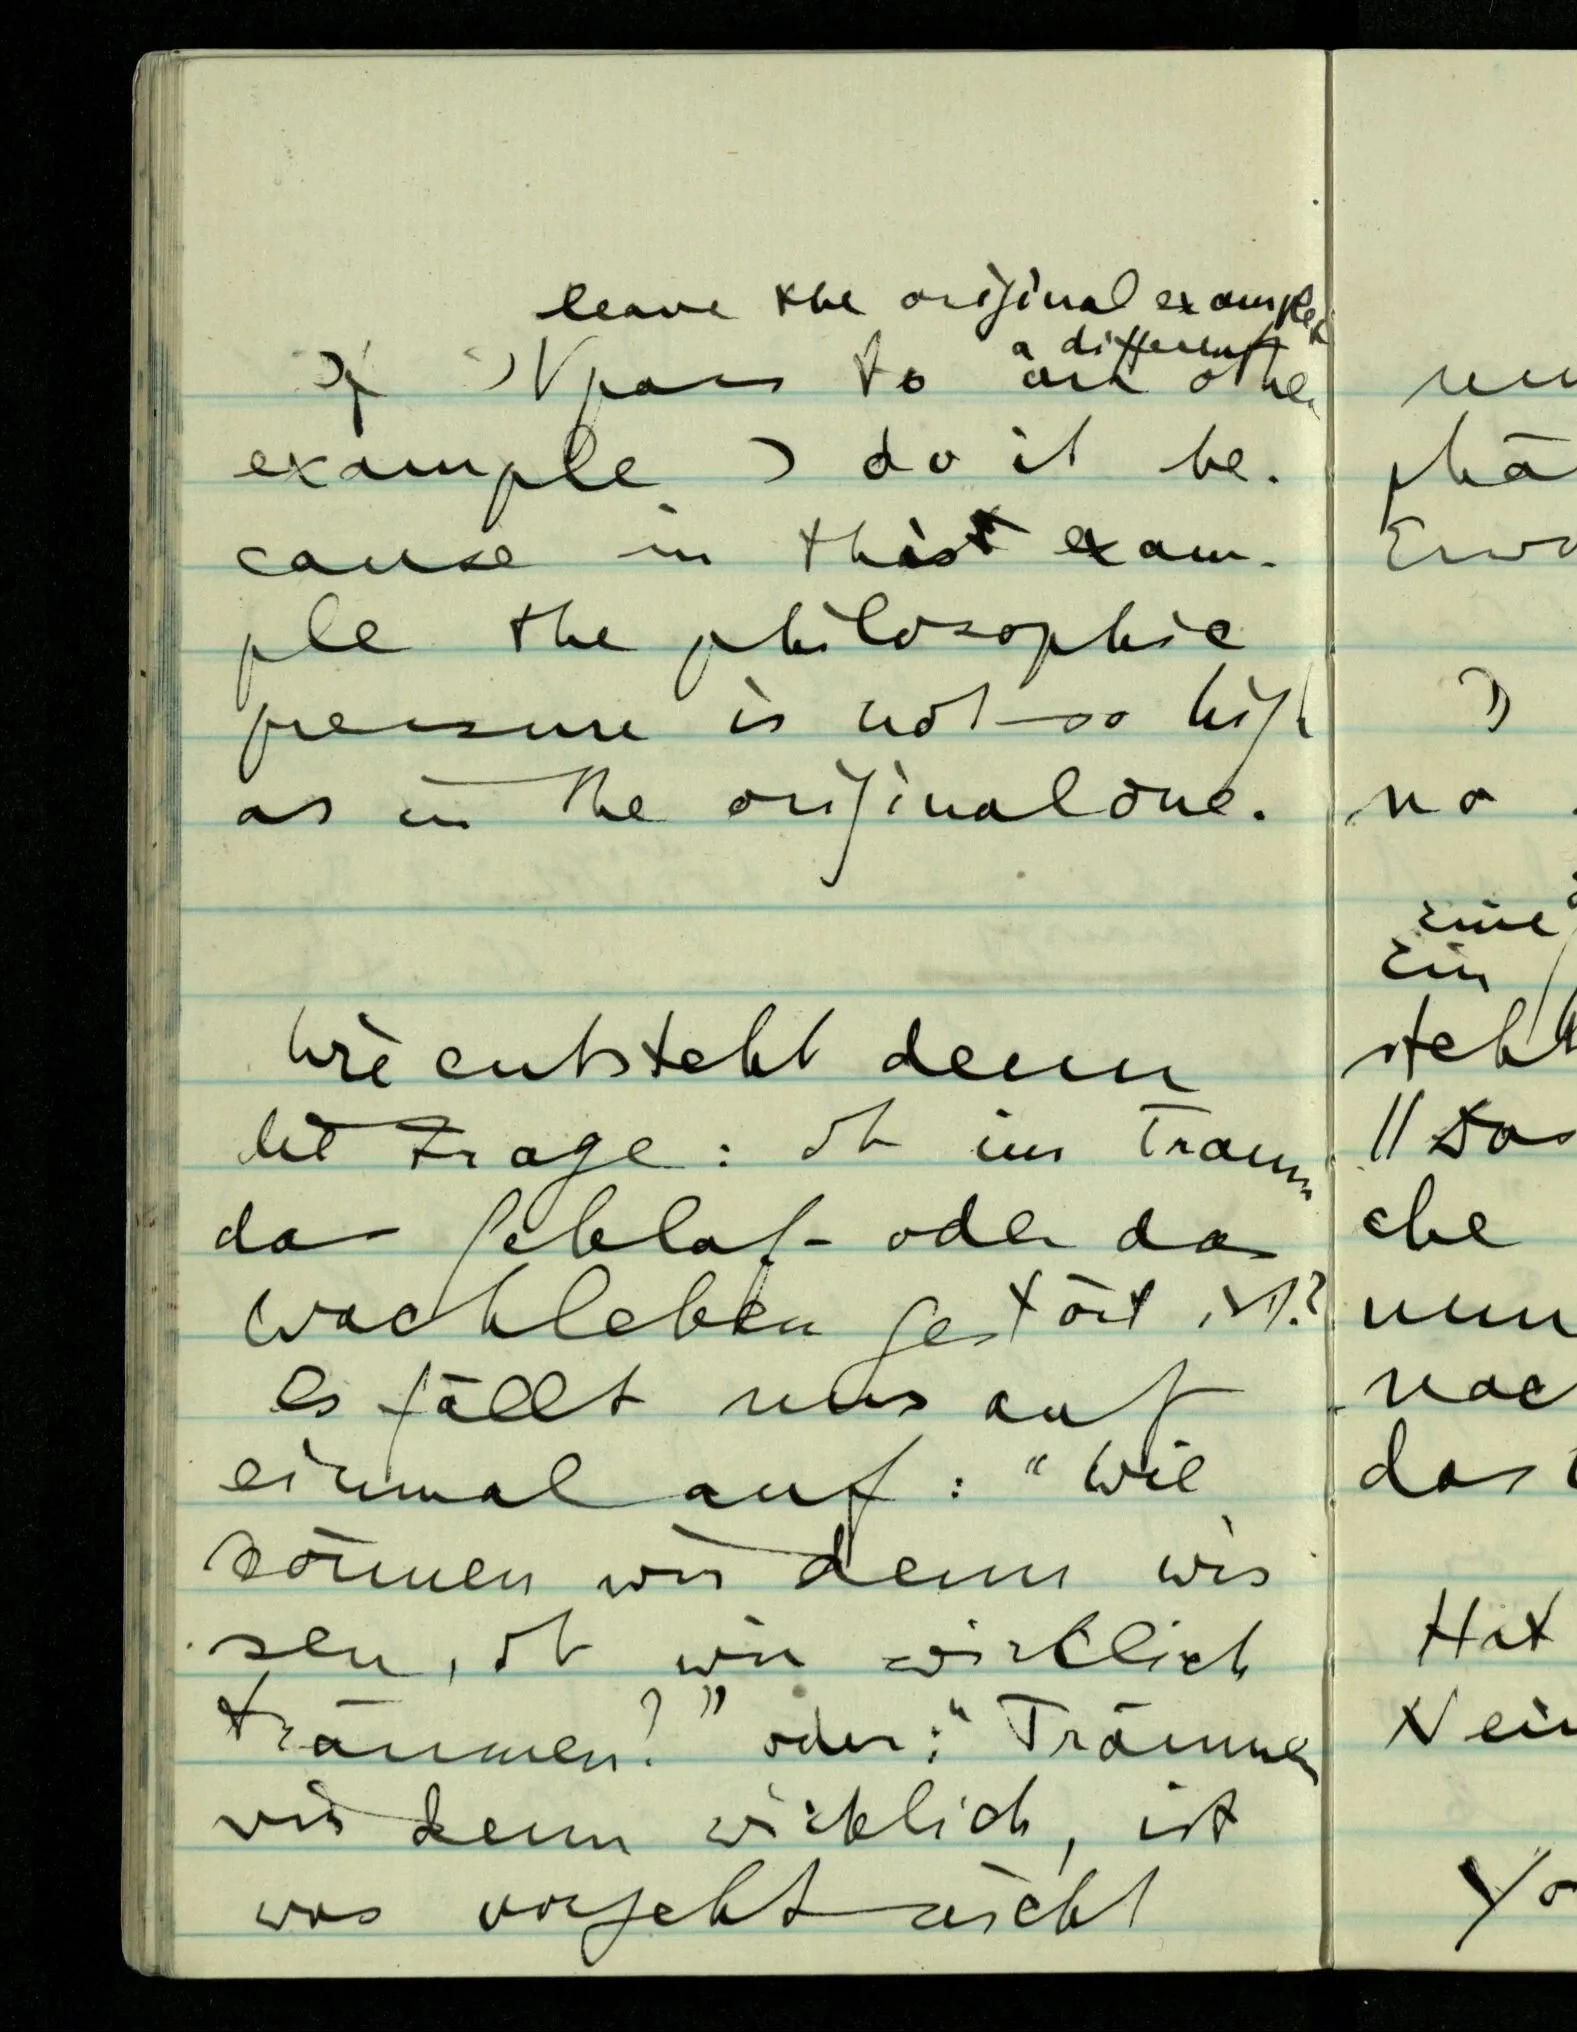 leave the original example &
a different
If I pass to an other
example I do it be-
cause in this exam-
ple the philosophic
pressure is not so high
as in the original one.
Wie entsteht denn
die Frage: ob im Traum
das Schlaf- oder das
Wachleben gestört ist?
Es fällt uns auf
einmal auf: "Wie
können wir denn wis
sen, ob wir wirklich
träumen?" oder: "Träumen
wir denn wirklich, ist
was vorgeht nicht
phä
no
Eine
Ein
steht
"Das
che
nun
das
Hat